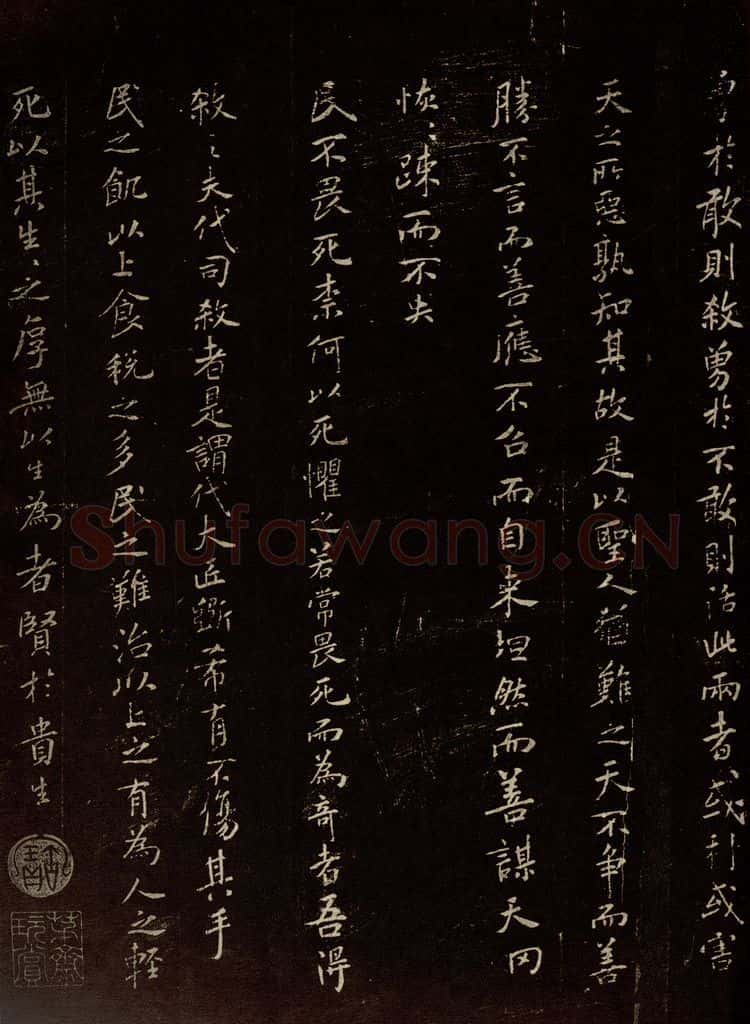 勇於敢則殺勇於不敢則活此兩者或利或害
天之所惡孰知其故是以聖人猶難之天不爭而善
勝不言而善應不召而自来坦然而善謀天罔
恢〻踈而不失
民不畏死柰何以死懼之若常畏死而為奇者吾得
殺〻夫代司殺者是謂代大匠斲希有不傷其手
民之飢以上食稅之多民之難治以上之有為人之輕
死以其生〻之厚無以生為者賢於貴生
Shufawang.CN